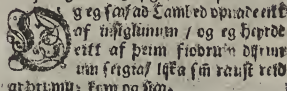 Og eg sa/ ad Lambed vpnade eitt
af innsiglunum / og eg heyrde
eitt af þeim fiorum dyrum
um seigia/ lijka sem raust reid
arþrumu: kom og siaa.